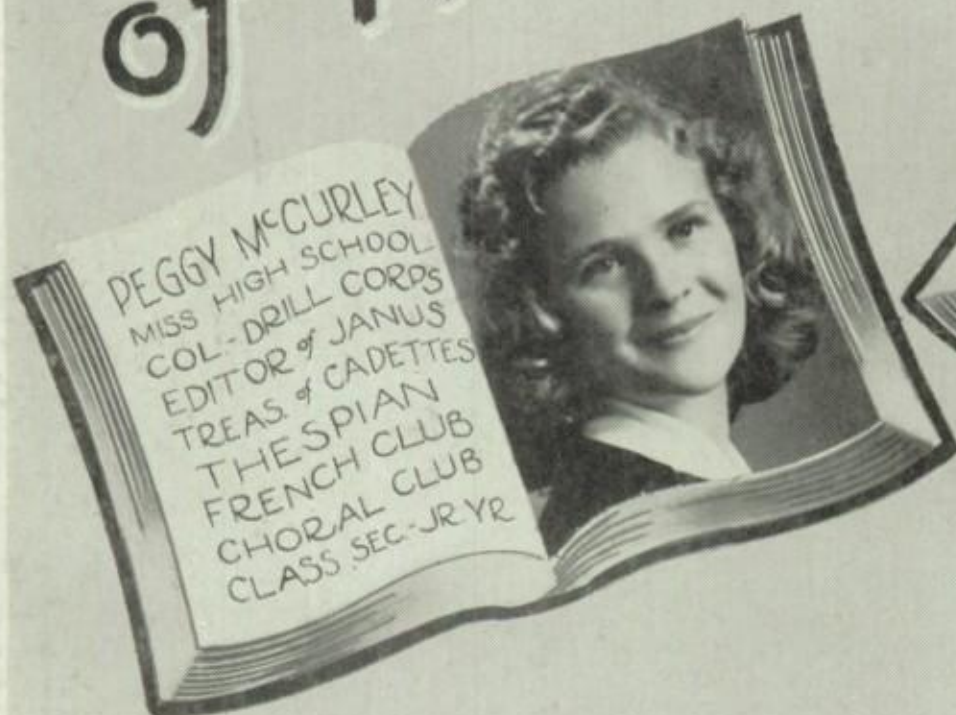 of
PEGGY McCURLEY
MISS HIGH SCHOOL
COL.-DRILL CORPS
EDITOR of JANUS
TREAS. of CADETTES
THESPIAN
FRENCH CLUB
CHORAL CLUB
CLASS SEC.-JR YR